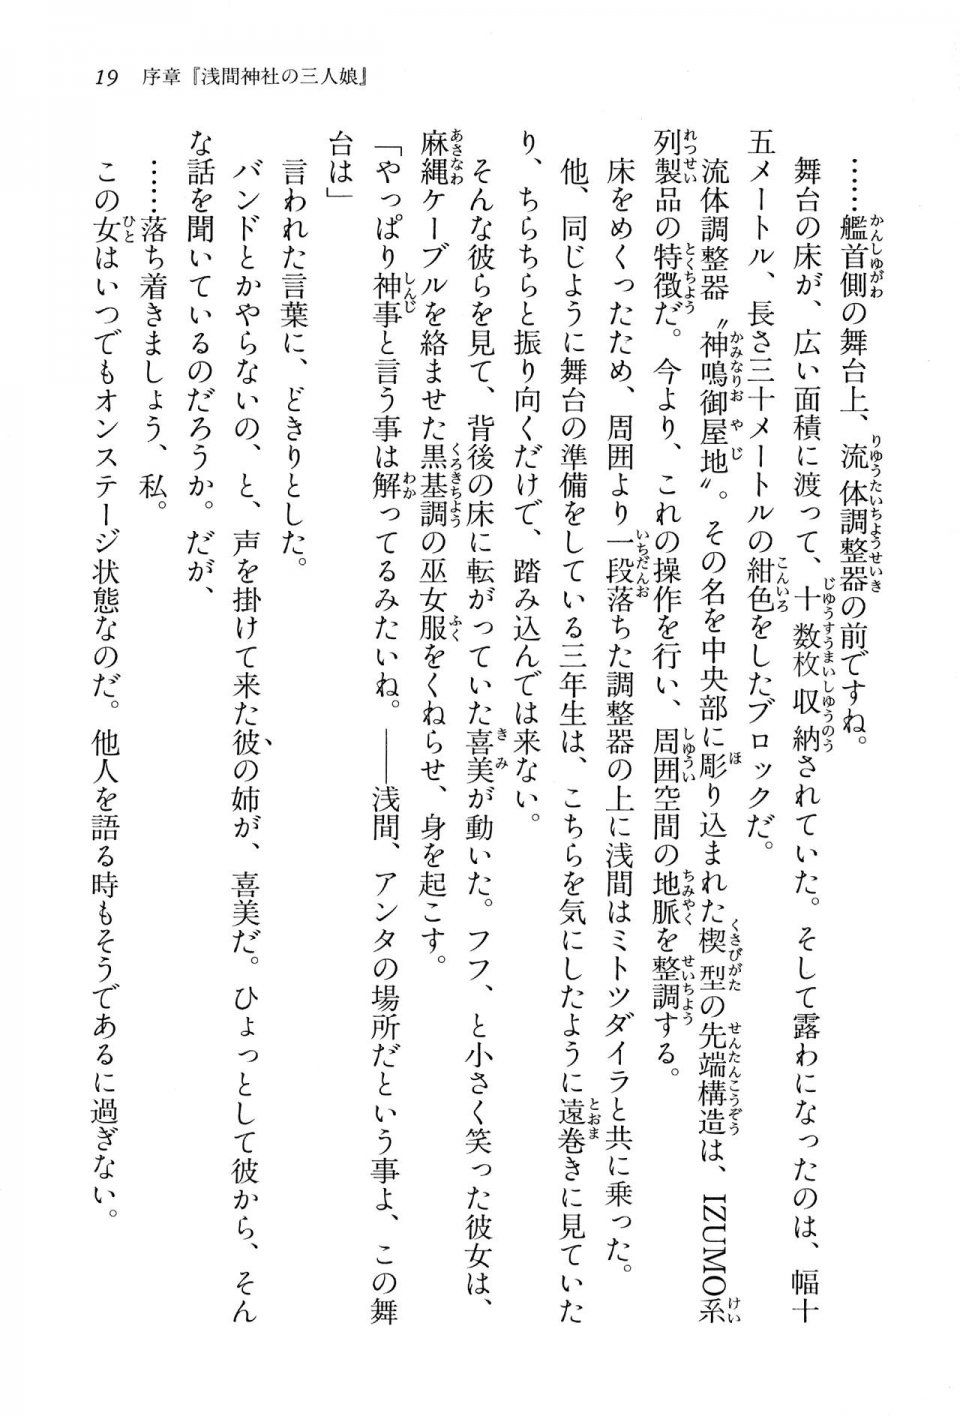 19 序章『浅間神社の三人娘』
……艦首側の舞台上、流体調整器の前ですね。
舞台の床が、広い面積に渡って、十数枚収納されていた。そして露わになったのは、幅十
五メートル、長さ三十メートルの紺色をしたブロックだ。
流体調整器〝神鳴御屋地〟。その名を中央部に彫り込まれた楔型の先端構造は、IZUMO系
列製品の特徴だ。今より、これの操作を行い、周囲空間の地脈を整調する。
床をめくったため、周囲より一段落ちた調整器の上に浅間はミトツダイラと共に乗った。
他、同じように舞台の準備をしている三年生は、こちらを気にしたように遠巻きに見ていた
り、ちらちらと振り向くだけで、踏み込んでは来ない。
そんな彼らを見て、背後の床に転がっていた喜美が動いた。フフ、と小さく笑った彼女は、
麻縄ケーブルを絡ませた黒基調の巫女服をくねらせ、身を起こす。
「やっぱり神事と言う事は解ってるみたいね。――浅間、アンタの場所だという事よ、この舞
台は」
言われた言葉に、どきりとした。
バンドとかやらないの、と、声を掛けて来た彼の姉が、喜美だ。ひょっとして彼から、そん
な話を聞いているのだろうか。だが、
……落ち着きましょう、私。
この女はいつでもオンステージ状態なのだ。他人を語る時もそうであるに過ぎない。